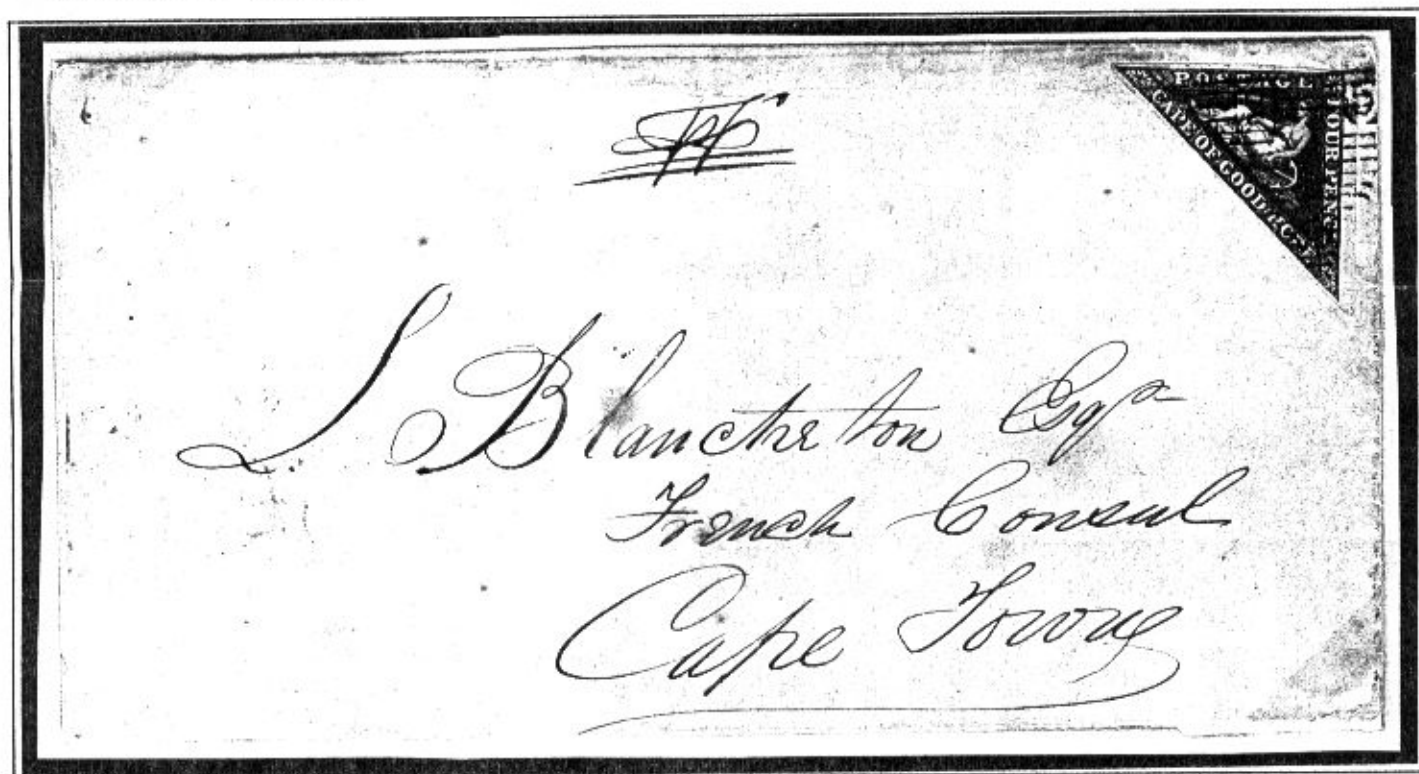 POSTAGE
FOUR PENCE
CAPE OF GOOD HOPE
L Blancheton Esqr
French Consul
Cape Town